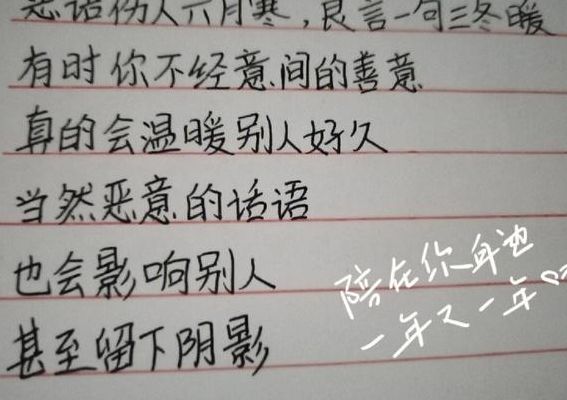 恶语伤人六月寒，良言一句三冬暖
有时你不经意间的善意
真的会温暖别人好久
当然恶意的话语
也会影响别人
甚至留下阴影
陪在你身边
一年又一年